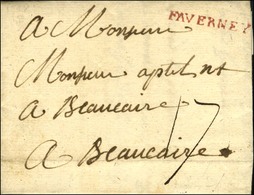 FAVERNEY
A Monsieur
Monsieur aptel nt
A Beaucaire
17
A Beaucaire